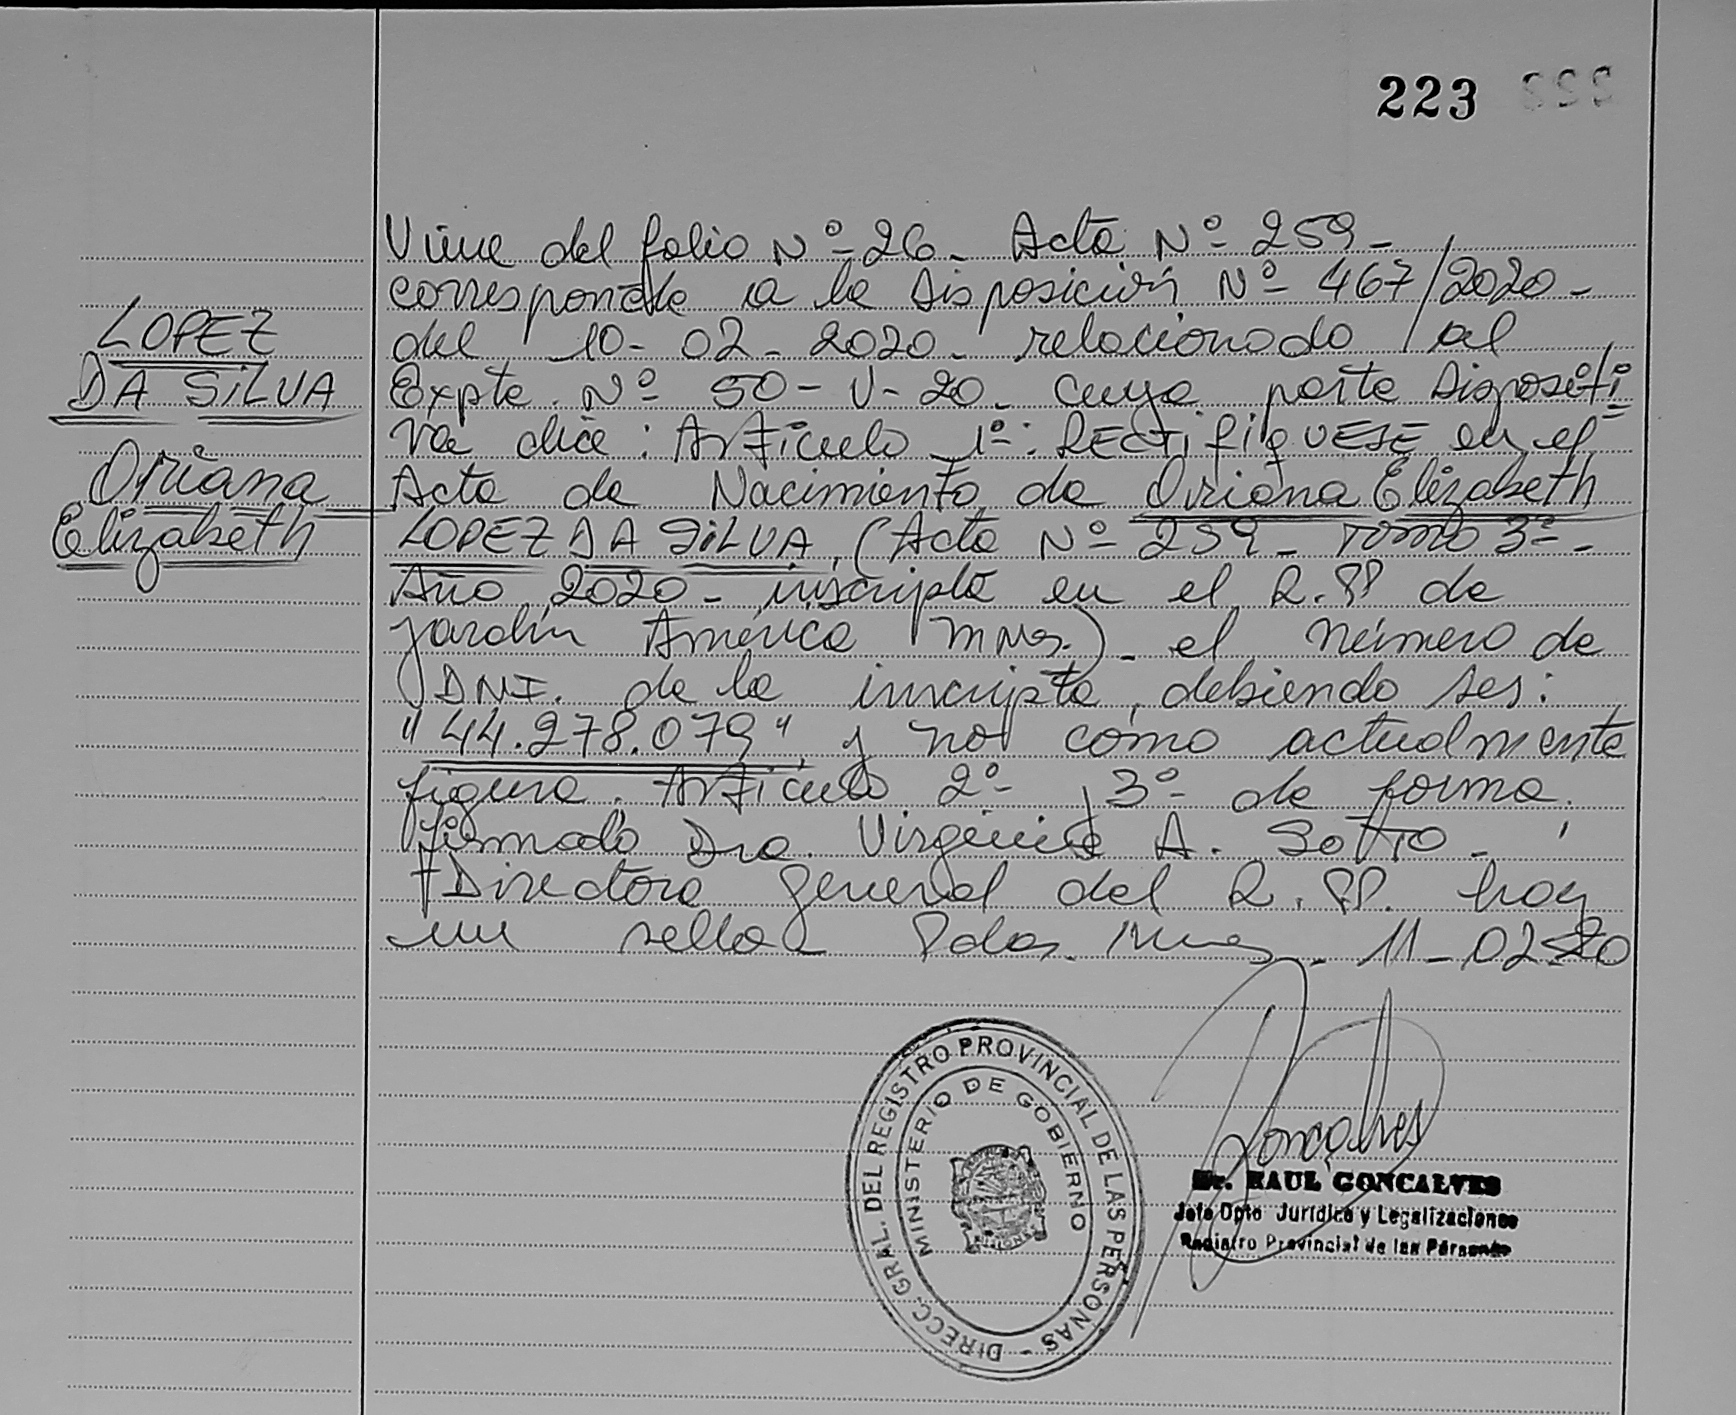 223
LOPEZ
DA SILVA
Oriana
Elizabeth
Viene del folio Nº 26. Acta Nº 259-
corresponde a la Disposición Nº 467/2020-
del 10-02-2020. relacionado al
Expte. Nº 50-V-20. cuya parte Dispositi
va dice: Artículo 1º: RECTIFIQUESE en el
Acta de Nacimiento de Oriana Elizabeth
LOPEZ DA SILVA, (Acta Nº 259- Tomo 3º-
Año 2020- inscripta en el R.PP de
Jardín América Mnes.)- el número de
DNI. de la inscripta, debiendo ser:
"44.278.079" y no como actualmente
figura. Artículo 2º y 3º de forma.
firmado Dra. Virginia A. Sotto-
Directora General del R.PP. hay
un sello- Pdas. Mnes. 11-02-20
DIRECC. GRAL. DEL REGISTRO PROVINCIAL DE LAS PERSONAS -
MINISTERIO DE GOBIERNO
MISIONES
Goncalves
Dr. RAUL GONCALVES
Jefe Dpto Jurídico y Legalizaciones
Registro Provincial de las Personas